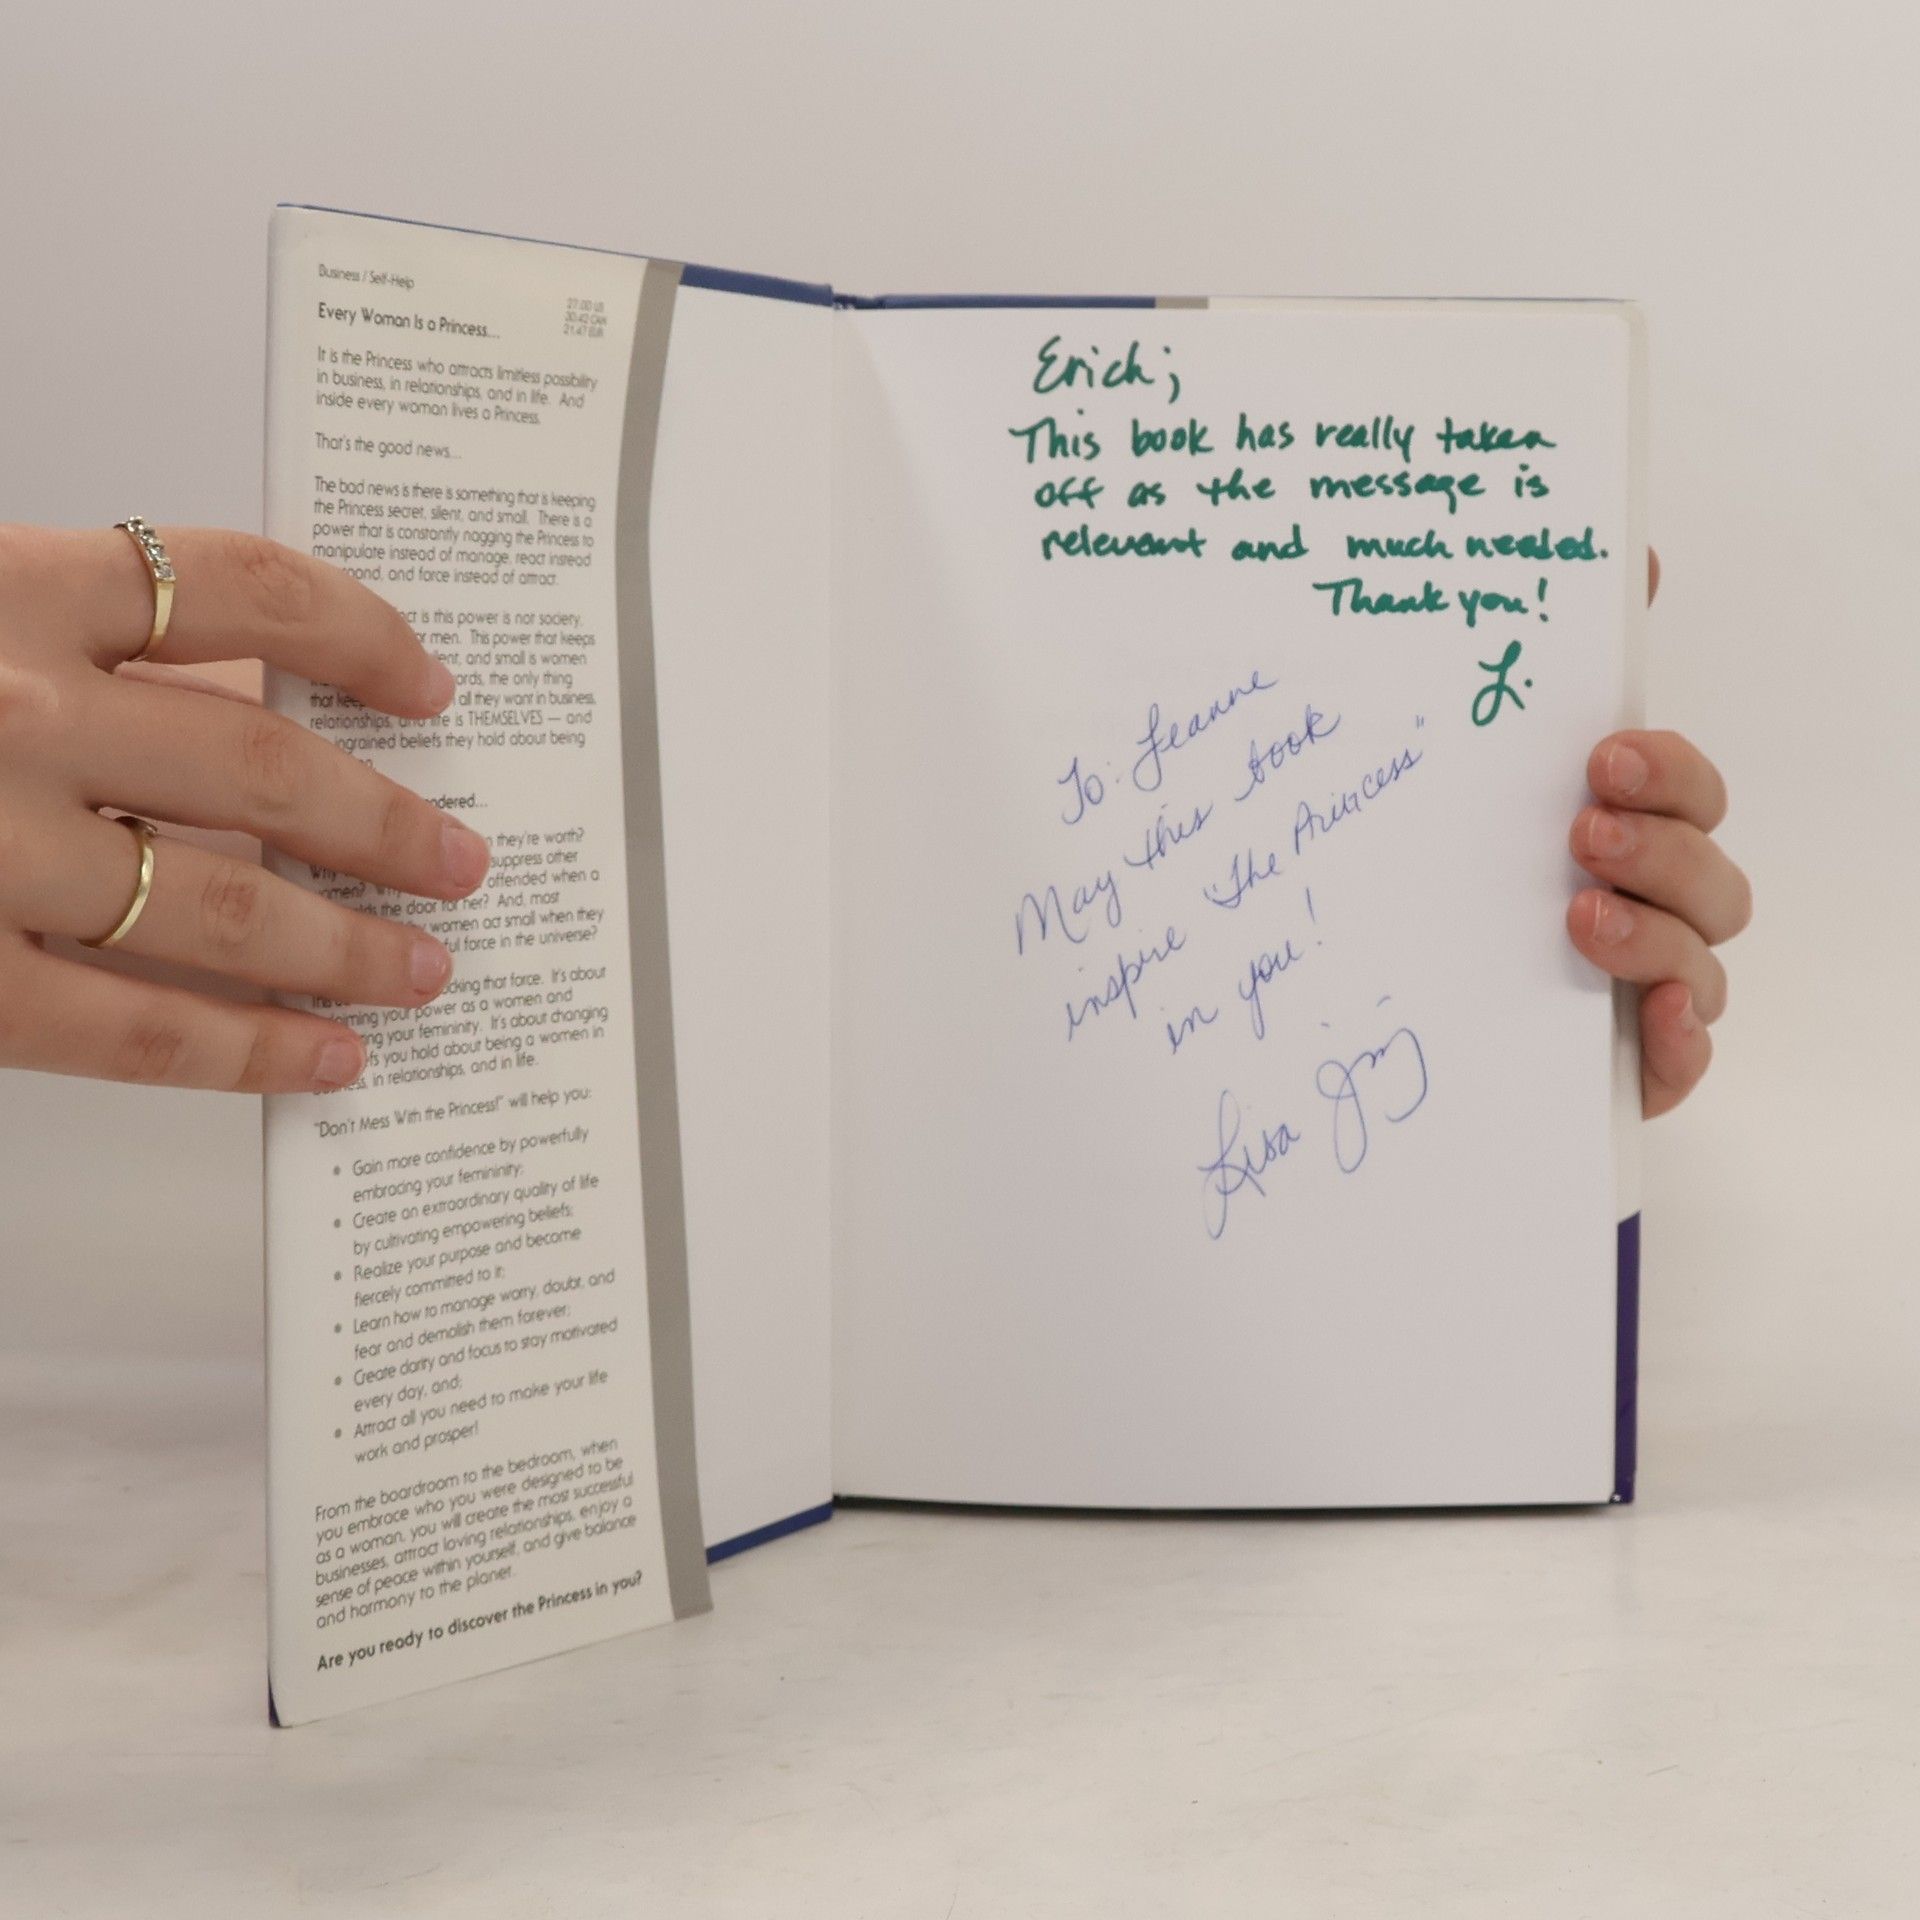 Business / Self-Help
27.00 US
30.42 CAN
21.47 EUR
Every Woman Is a Princess...
It is the Princess who attracts limitless possibility
in business, in relationships, and in life. And
inside every woman lives a Princess.
That's the good news...
The bad news is there is something that is keeping
the Princess secret, silent, and small. There is a
power that is constantly nagging the Princess to
manipulate instead of manage, react instead
and, and force instead of attract.
is this power is not society,
men. This power that keeps
and small is women
the only thing
that all they want in business,
relationships, and life is THEMSELVES — and
ingrained beliefs they hold about being
they're worth?
suppress other
offended when a
the door for her? And, most
women act small when they
force in the universe?
that force. It's about
your power as a women and
your femininity. It's about changing
you hold about being a women in
in relationships, and in life.
"Don't Mess With the Princess!" will help you:
• Gain more confidence by powerfully
embracing your femininity;
• Create an extraordinary quality of life
by cultivating empowering beliefs;
• Realize your purpose and become
fiercely committed to it;
• Learn how to manage worry, doubt, and
fear and demolish them forever;
• Create clarity and focus to stay motivated
every day, and;
• Attract all you need to make your life
work and prosper!
From the boardroom to the bedroom, when
you embrace who you were designed to be
as a woman, you will create the most successful
businesses, attract loving relationships, enjoy a
sense of peace within yourself, and give balance
and harmony to the planet.
Are you ready to discover the Princess in you?
Erich;
This book has really taken
off as the message is
relevant and much needed.
Thank you!
L.
To: Leanne
May this book
inspire "The Princess"
in you!
Lisa